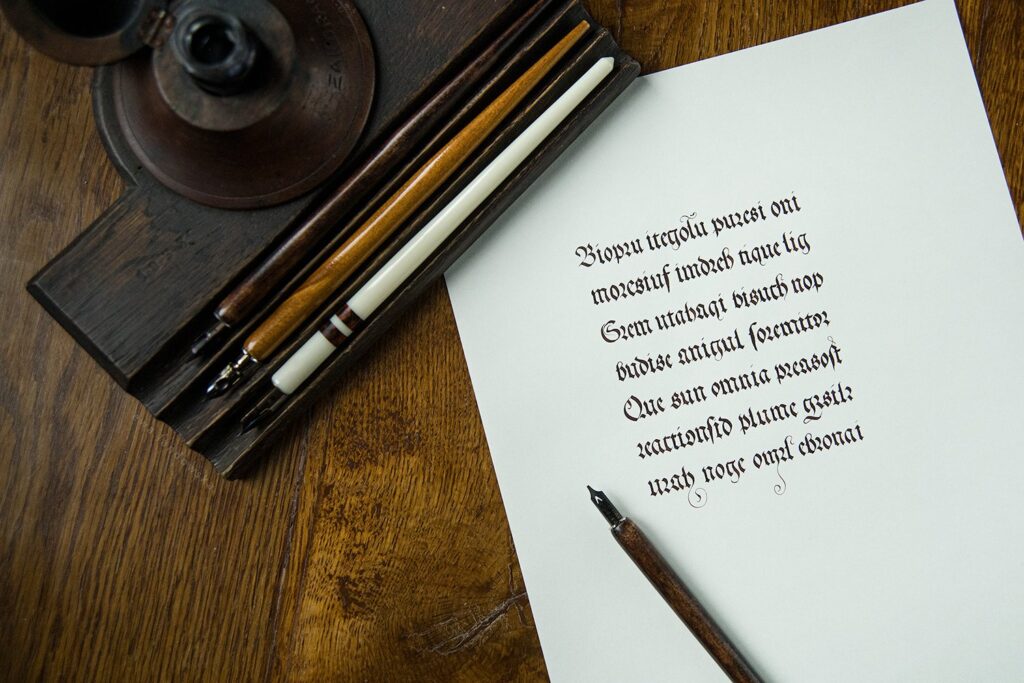 Biopru itegolu puresi oni
moresiuf imdreb tique lig
Srem utabaqi bisuch nop
budise anigul foremitor
Que sun omnia preasoft
reactionsid plume
noge ebronai